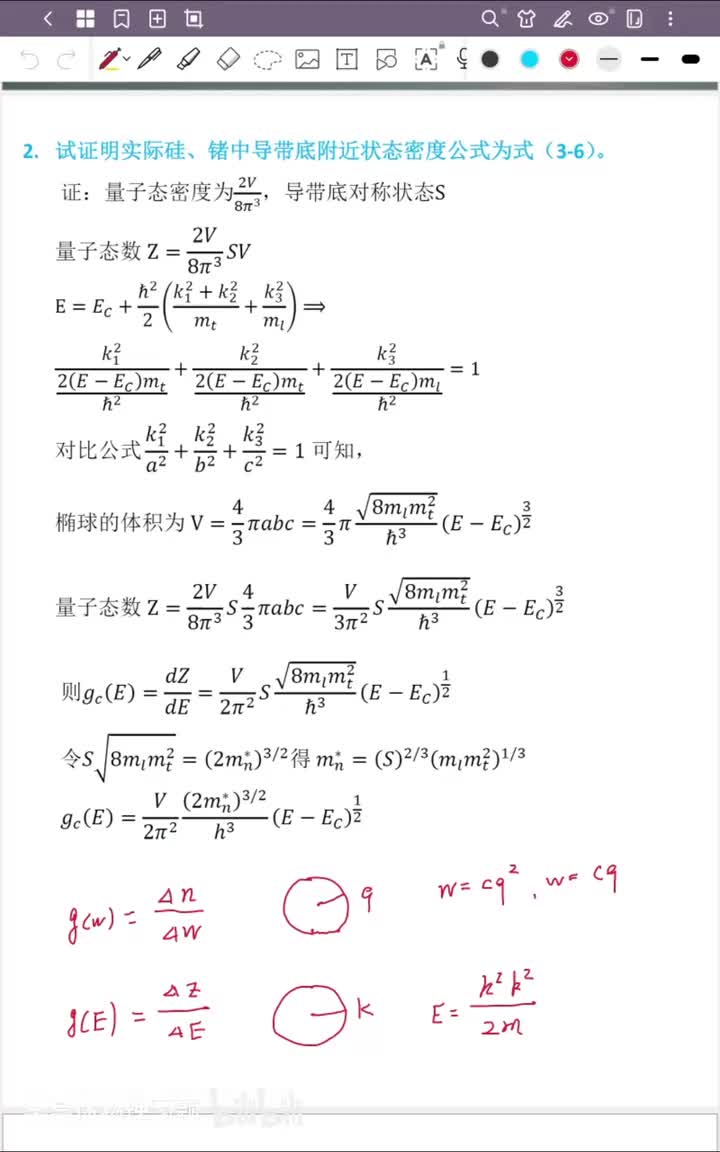 2. 试证明实际硅、锗中导带底附近状态密度公式为式（3-6）。
证：量子态密度为$\frac{2V}{8\pi^3}$，导带底对称状态S
量子态数 Z = $\frac{2V}{8\pi^3}SV$
E = $E_C + \frac{\hbar^2}{2}\left(\frac{k_1^2 + k_2^2}{m_t} + \frac{k_3^2}{m_l}\right) \Longrightarrow$
$\frac{k_1^2}{\frac{2(E - E_C)m_t}{\hbar^2}} + \frac{k_2^2}{\frac{2(E - E_C)m_t}{\hbar^2}} + \frac{k_3^2}{\frac{2(E - E_C)m_l}{\hbar^2}} = 1$
对比公式$\frac{k_1^2}{a^2} + \frac{k_2^2}{b^2} + \frac{k_3^2}{c^2} = 1$ 可知，
椭球的体积为 V = $\frac{4}{3}\pi abc = \frac{4}{3}\pi\frac{\sqrt{8m_l m_t^2}}{\hbar^3}(E - E_C)^{\frac{3}{2}}$
量子态数 Z = $\frac{2V}{8\pi^3}S\frac{4}{3}\pi abc = \frac{V}{3\pi^2}S\frac{\sqrt{8m_l m_t^2}}{\hbar^3}(E - E_C)^{\frac{3}{2}}$
则$g_c(E) = \frac{dZ}{dE} = \frac{V}{2\pi^2}S\frac{\sqrt{8m_l m_t^2}}{\hbar^3}(E - E_C)^{\frac{1}{2}}$
令$S\sqrt{8m_l m_t^2} = (2m_n^*)^{3/2}$得 $m_n^* = (S)^{2/3}(m_l m_t^2)^{1/3}$
$g_c(E) = \frac{V}{2\pi^2}\frac{(2m_n^*)^{3/2}}{h^3}(E - E_C)^{\frac{1}{2}}$
$g(w) = \frac{\Delta n}{\Delta w}$ q $w = cq^2, w = cq$
$g(E) = \frac{\Delta Z}{\Delta E}$ k $E = \frac{\hbar^2 k^2}{2m}$